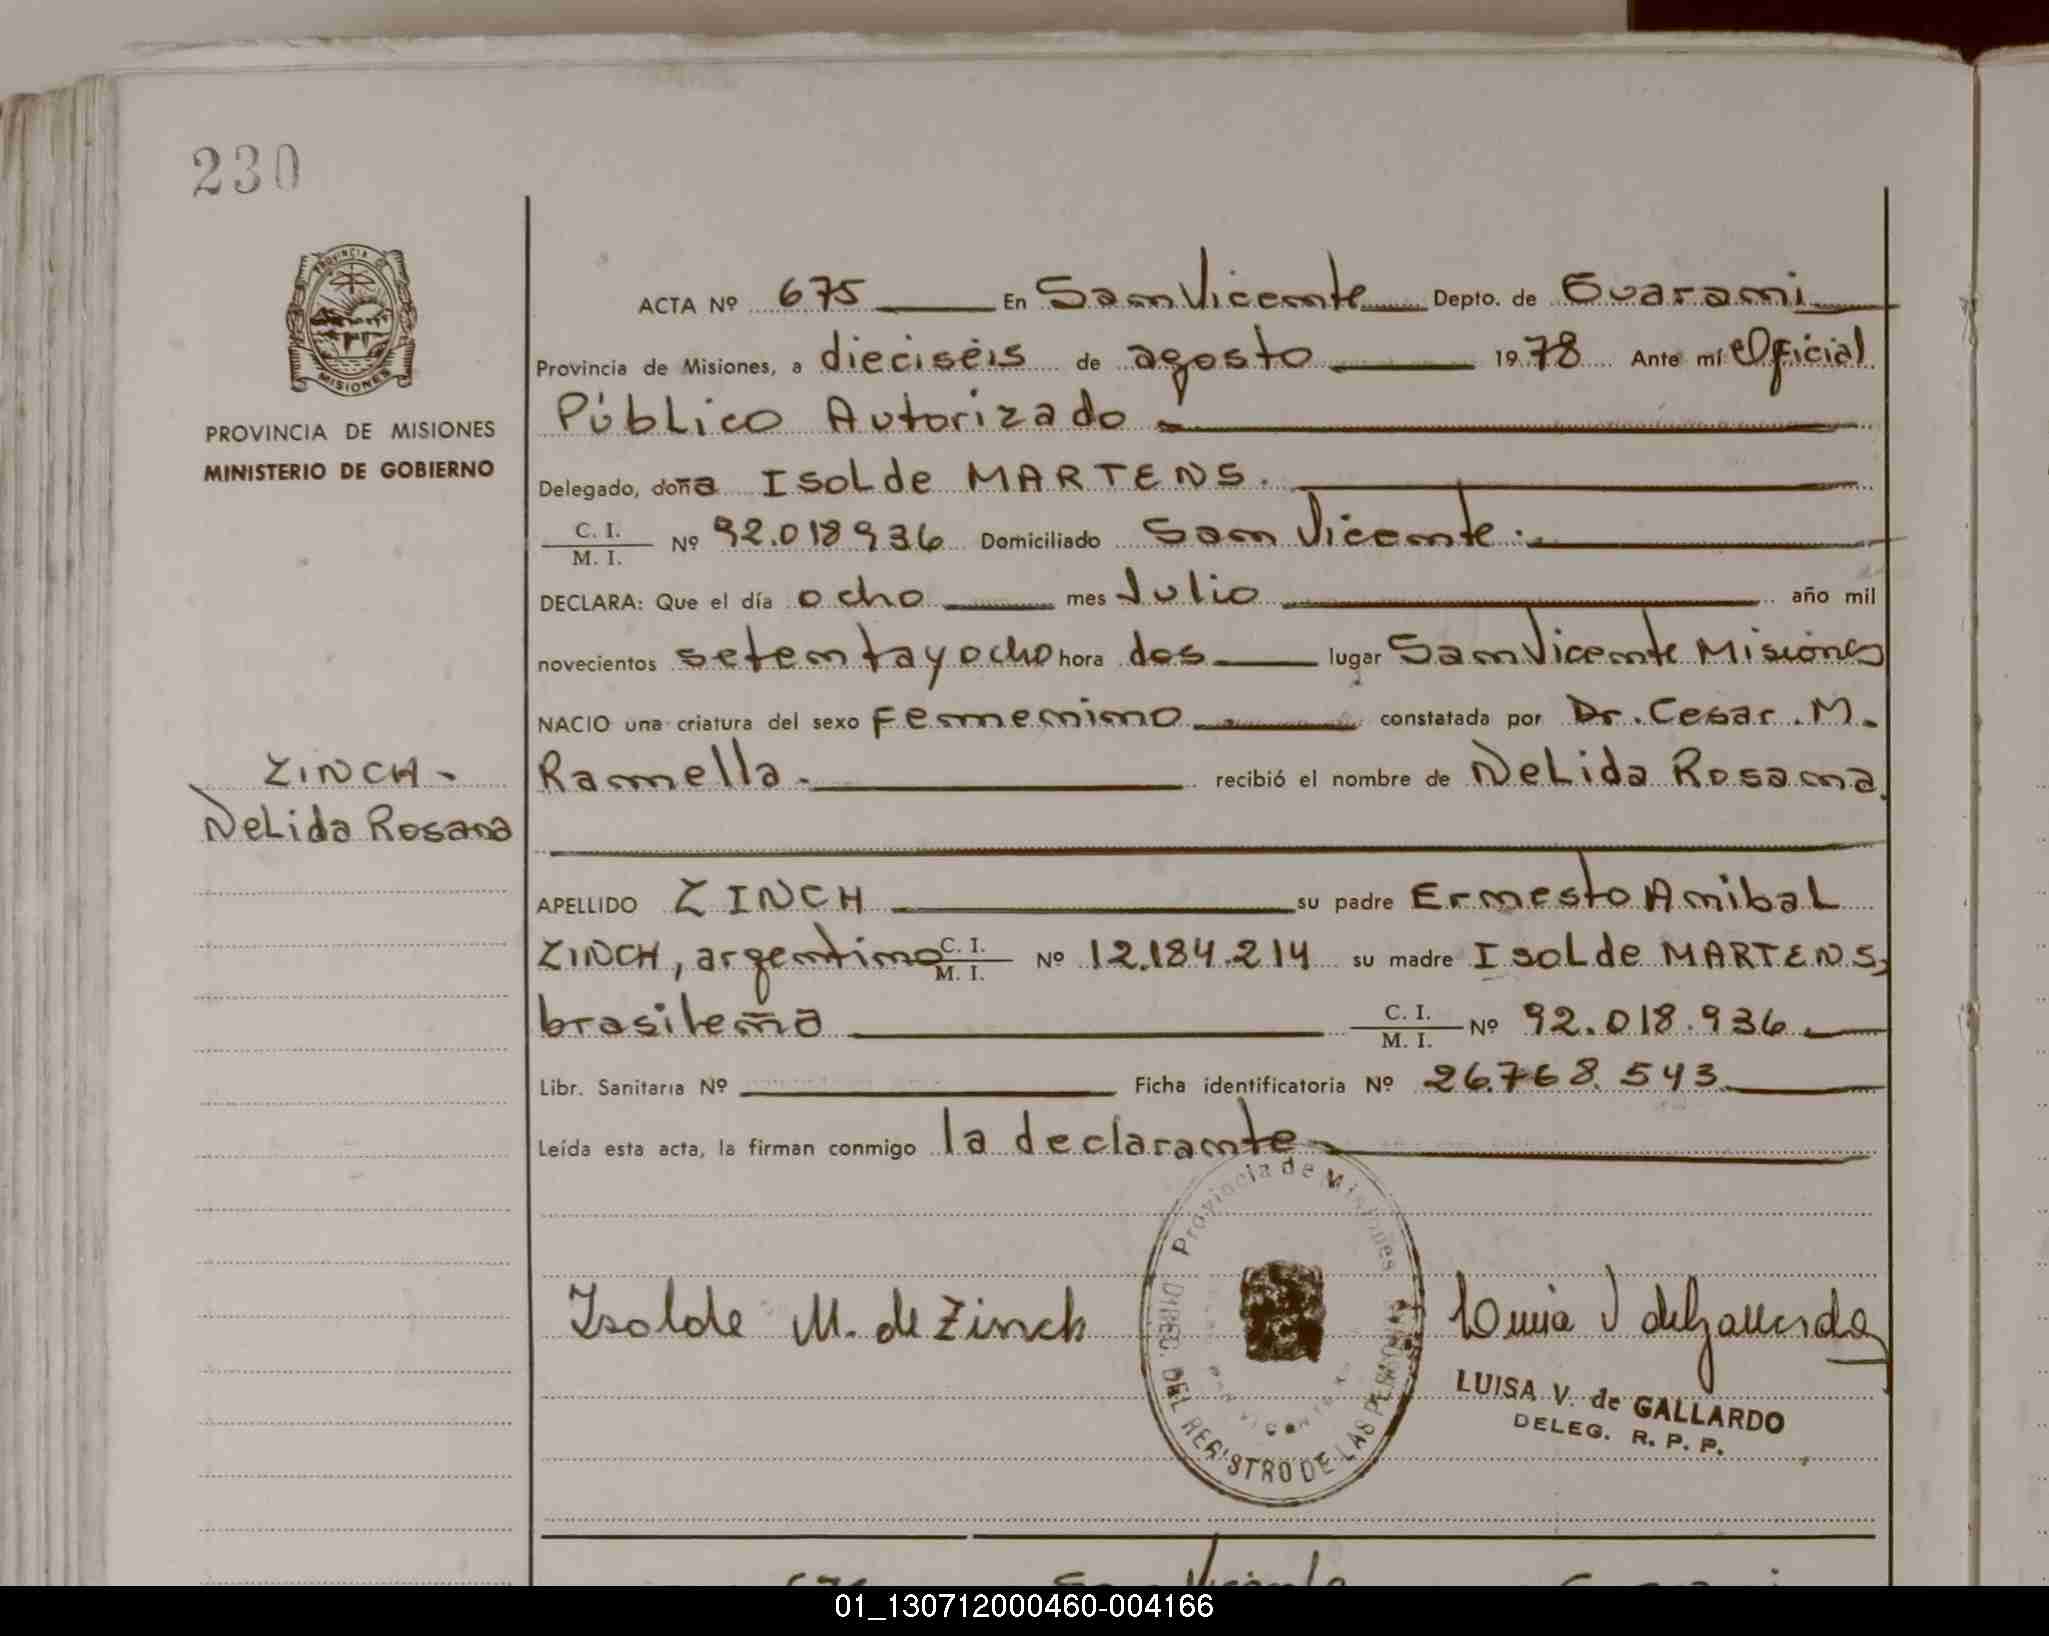 230
PROVINCIA DE
MISIONES
PROVINCIA DE MISIONES
MINISTERIO DE GOBIERNO
ZINCH -
Nelida Rosana
ACTA Nº 675 En San Vicente Depto. de Guarani
Provincia de Misiones, a dieciséis de agosto 1978 Ante mí Oficial
Público Autorizado
Delegado, doña Isolde MARTENS.
C. I.
M. I. Nº 92.018936 Domiciliado San Vicente.
DECLARA: Que el día ocho mes Julio año mil
novecientos setentayocho hora dos lugar San Vicente Misiones
NACIO una criatura del sexo Femenino constatada por Dr. Cesar M.
Ramella. recibió el nombre de Nelida Rosana
APELLIDO ZINCH su padre Ernesto Anibal
ZINCH, argentino C. I.
M. I. Nº 12.184.214 su madre Isolde MARTENS,
brasileña C. I.
M. I. Nº 92.018.936
Libr. Sanitaria Nº Ficha identificatoria Nº 26.768.543
Leída esta acta, la firman conmigo la declarante
Provincia de Misiones
DIREC. DEL REGISTRO DE LAS PERSONAS
Isolde M. de Zinch
LUISA V. de GALLARDO
DELEG. R. P. P.
01_130712000460-004166